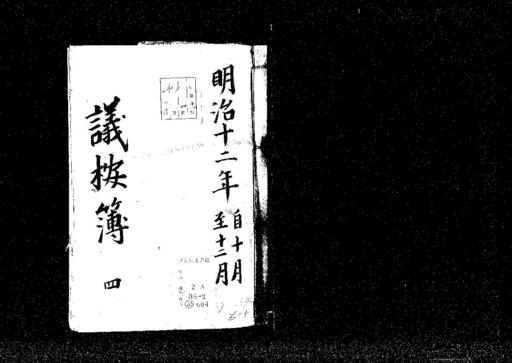 明治十二年 自十月
至十二月
議按簿 四
2A
35-2
604